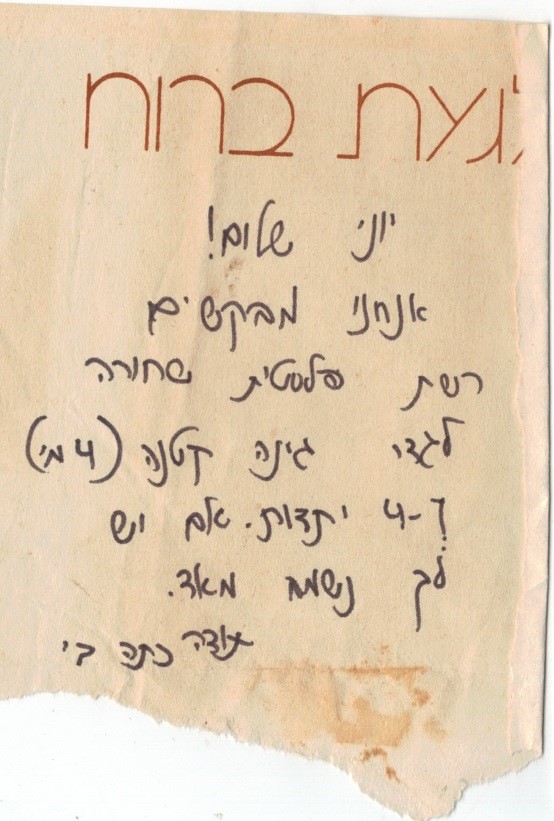 גבעת ברוח
יוני שלום!
אנחנו מבקשים
רשת פלסטית שחורה
לגדר גינה קטנה (4 מ')
ו-4 יתדות. אם יש
לך נשמח מאד.
תודה כתה ב'